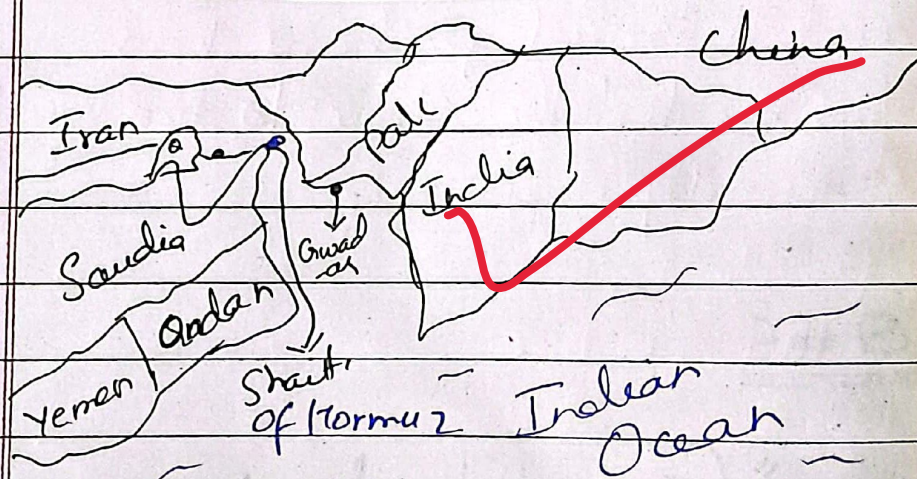 China
Iran
Pak
India
Saudia
Gwad
-ar
Yemen
Straitt
Of Hormuz
Indian
Ocean